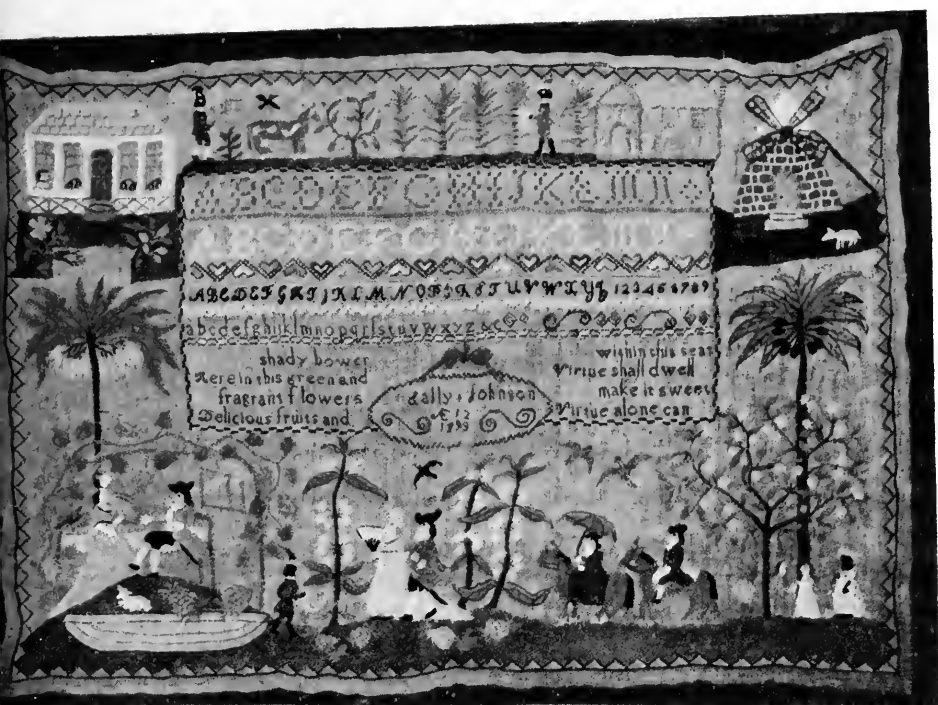 ABCDEFGHIJKLMN
ABCDEFGHIJKLMN
ABCDEFGHIJKLMNOPQRSTUVWXYZ 123456789
abcdefghijklmnopqrſstuvwxyz &c
shady bower
Here in this green and
fragrant flowers
Delicious fruits and
Sally Johnson
Æ 12
1799
within this seat
Virtue shall dwell
make it sweet
Virtue alone can